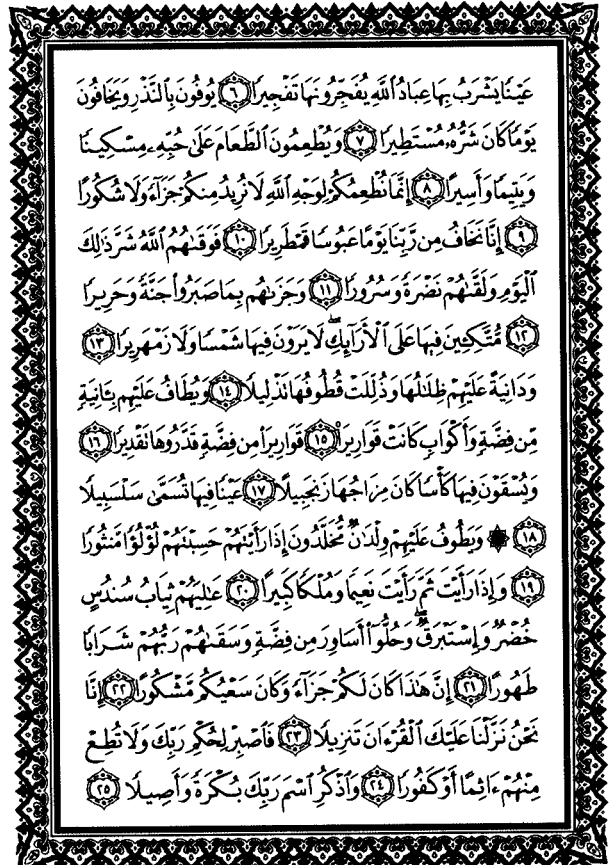 عَيْنًا يَشْرَبُ بِهَا عِبَادُ ٱللَّهِ يُفَجِّرُونَهَا تَفْجِيرًا ٦ يُوفُونَ بِٱلنَّذْرِ وَيَخَافُونَ
يَوْمًا كَانَ شَرُّهُۥ مُسْتَطِيرًا ٧ وَيُطْعِمُونَ ٱلطَّعَامَ عَلَىٰ حُبِّهِۦ مِسْكِينًا
وَيَتِيمًا وَأَسِيرًا ٨ إِنَّمَا نُطْعِمُكُمْ لِوَجْهِ ٱللَّهِ لَا نُرِيدُ مِنكُمْ جَزَآءً وَلَا شُكُورًا
٩ إِنَّا نَخَافُ مِن رَّبِّنَا يَوْمًا عَبُوسًا قَمْطَرِيرًا ١٠ فَوَقَىٰهُمُ ٱللَّهُ شَرَّ ذَٰلِكَ
ٱلْيَوْمِ وَلَقَّىٰهُمْ نَضْرَةً وَسُرُورًا ١١ وَجَزَىٰهُم بِمَا صَبَرُوا۟ جَنَّةً وَحَرِيرًا
١٢ مُّتَّكِـِٔينَ فِيهَا عَلَى ٱلْأَرَآئِكِ ۖ لَا يَرَوْنَ فِيهَا شَمْسًا وَلَا زَمْهَرِيرًا ١٣
وَدَانِيَةً عَلَيْهِمْ ظِلَـٰلُهَا وَذُلِّلَتْ قُطُوفُهَا تَذْلِيلًا ١٤ وَيُطَافُ عَلَيْهِم بِـَٔانِيَةٍ
مِّن فِضَّةٍ وَأَكْوَابٍ كَانَتْ قَوَارِيرَا۠ ١٥ قَوَارِيرَا۟ مِن فِضَّةٍ قَدَّرُوهَا تَقْدِيرًا ١٦
وَيُسْقَوْنَ فِيهَا كَأْسًا كَانَ مِزَاجُهَا زَنجَبِيلًا ١٧ عَيْنًا فِيهَا تُسَمَّىٰ سَلْسَبِيلًا
١٨ ۞ وَيَطُوفُ عَلَيْهِمْ وِلْدَٰنٌ مُّخَلَّدُونَ إِذَا رَأَيْتَهُمْ حَسِبْتَهُمْ لُؤْلُؤًا مَّنثُورًا
١٩ وَإِذَا رَأَيْتَ ثَمَّ رَأَيْتَ نَعِيمًا وَمُلْكًا كَبِيرًا ٢٠ عَـٰلِيَهُمْ ثِيَابُ سُندُسٍ
خُضْرٌ وَإِسْتَبْرَقٌ ۖ وَحُلُّوٓا۟ أَسَاوِرَ مِن فِضَّةٍ وَسَقَىٰهُمْ رَبُّهُمْ شَرَابًا
طَهُورًا ٢١ إِنَّ هَـٰذَا كَانَ لَكُمْ جَزَآءً وَكَانَ سَعْيُكُم مَّشْكُورًا ٢٢ إِنَّا
نَحْنُ نَزَّلْنَا عَلَيْكَ ٱلْقُرْءَانَ تَنزِيلًا ٢٣ فَٱصْبِرْ لِحُكْمِ رَبِّكَ وَلَا تُطِعْ
مِنْهُمْ ءَاثِمًا أَوْ كَفُورًا ٢٤ وَٱذْكُرِ ٱسْمَ رَبِّكَ بُكْرَةً وَأَصِيلًا ٢٥